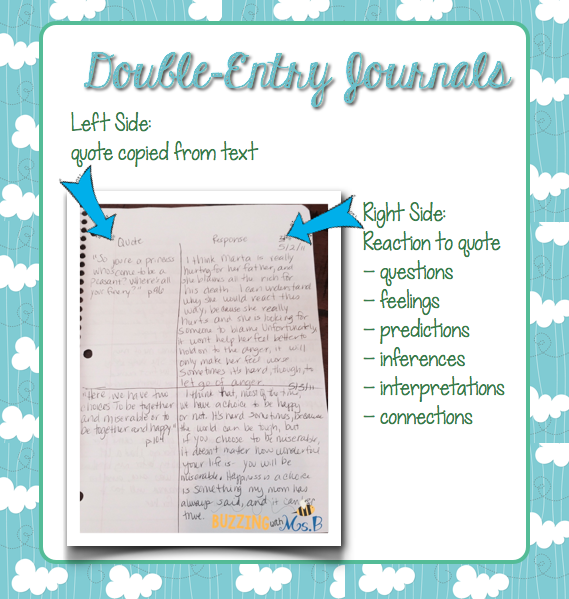 Double-Entry Journals
Left Side:
quote copied from text
Right Side:
Reaction to quote
- questions
- feelings
- predictions
- inferences
- interpretations
- connections
Quote
Response
5/2/11
"So you're a princess
who's come to be a
peasant? Where's all
your finery?" p186
I think Marta is really
hurting for her father, and
she blames all the rich for
his death. I can understand
why she would react this
way, because she really
hurts and she is looking for
someone to blame. Unfortunately,
it won't help her feel better to
hold on to the anger, it will
only make her feel worse.
Sometimes it's hard, though, to
let go of anger.
5/3/11
"Here, we have two
choices. To be together
and miserable or to
be together and happy."
I think that, most of the time,
we have a choice to be happy
or not. It's hard sometimes, because
the world can be tough, but
if you choose to be miserable,
it doesn't matter how wonderful
your life is - you will be
miserable. Happiness is a choice
is something my mom has
always said, and it can be
true.
BUZZING with Ms. B